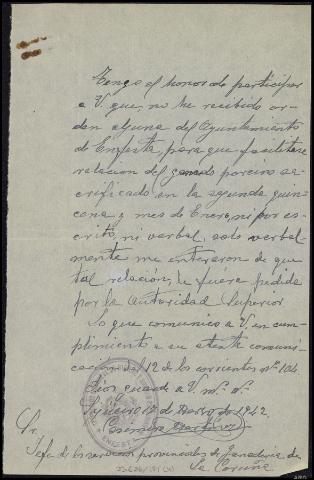 Tengo el honor de participar
a V. que, no he recibido or-
den alguna del Ayuntamiento
de Enfesta para que facilitase
relacion del ganado porcino sa-
crificado en la segunda quin-
cena y mes de Enero, ni por es-
crito, ni verbal, solo verbal-
mente me enteraron de que
tal relación, le fuera pedida
por la autoridad Superior
Lo que comunico a V. en cum-
plimiento a su atenta comuni-
cación del 12 de los corrientes nº 104
Dios guarde a V. mˢ. aˢ.
de 1942.
Casimiro Martinez
Sr.
Jefe de los servicios provinciales de Ganaderia de
La Coruña